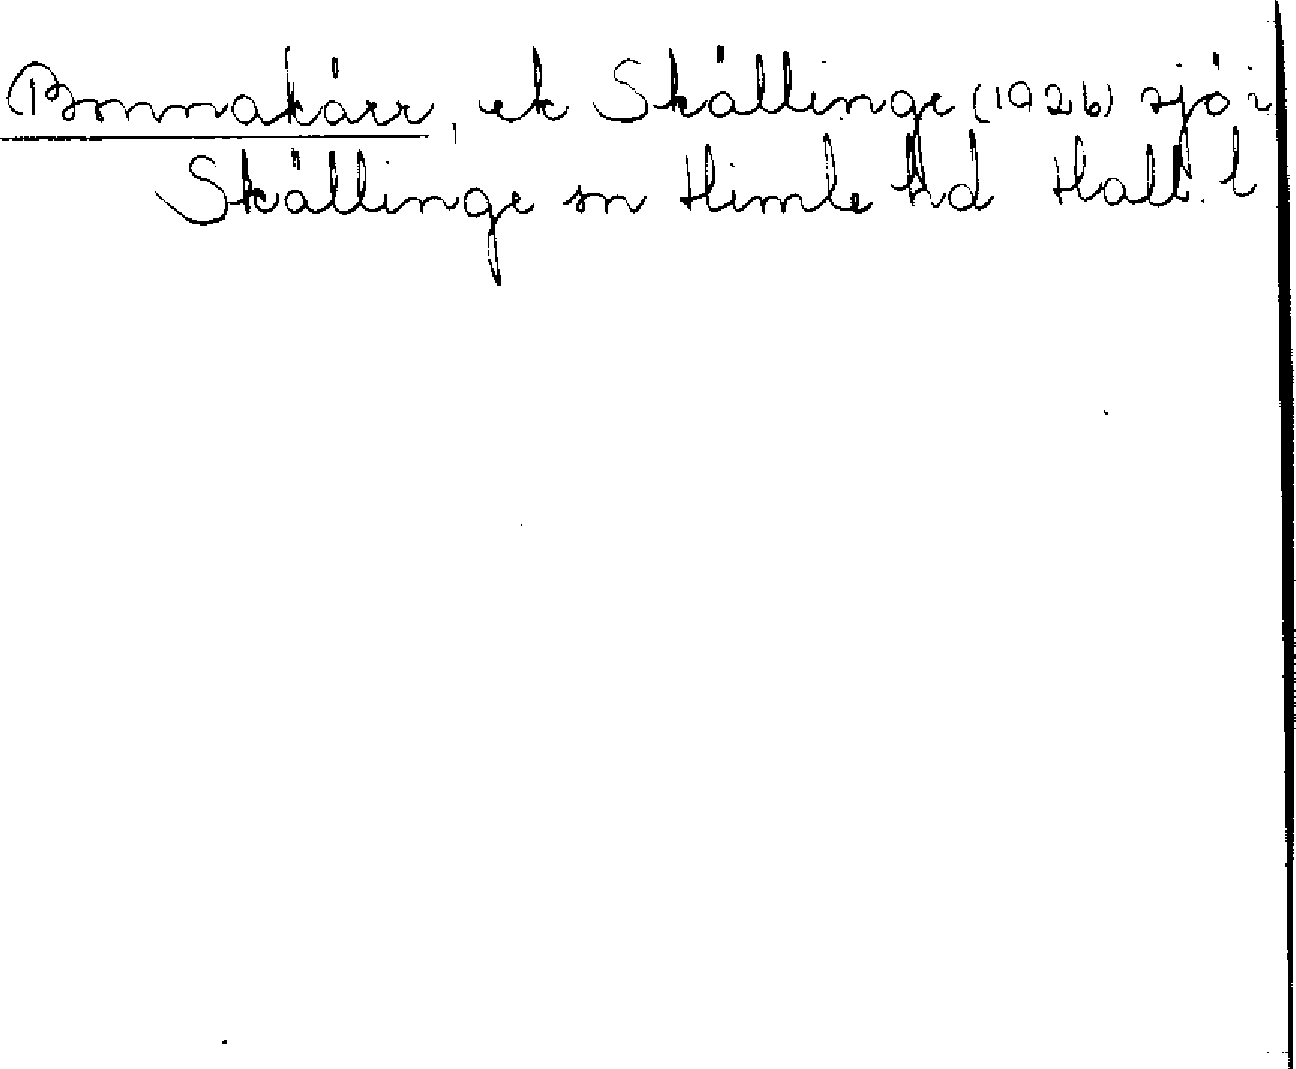 Bonnakärr, ek Skällinge (1926) sjö i
Skällinge sn Himle hd Hall. l